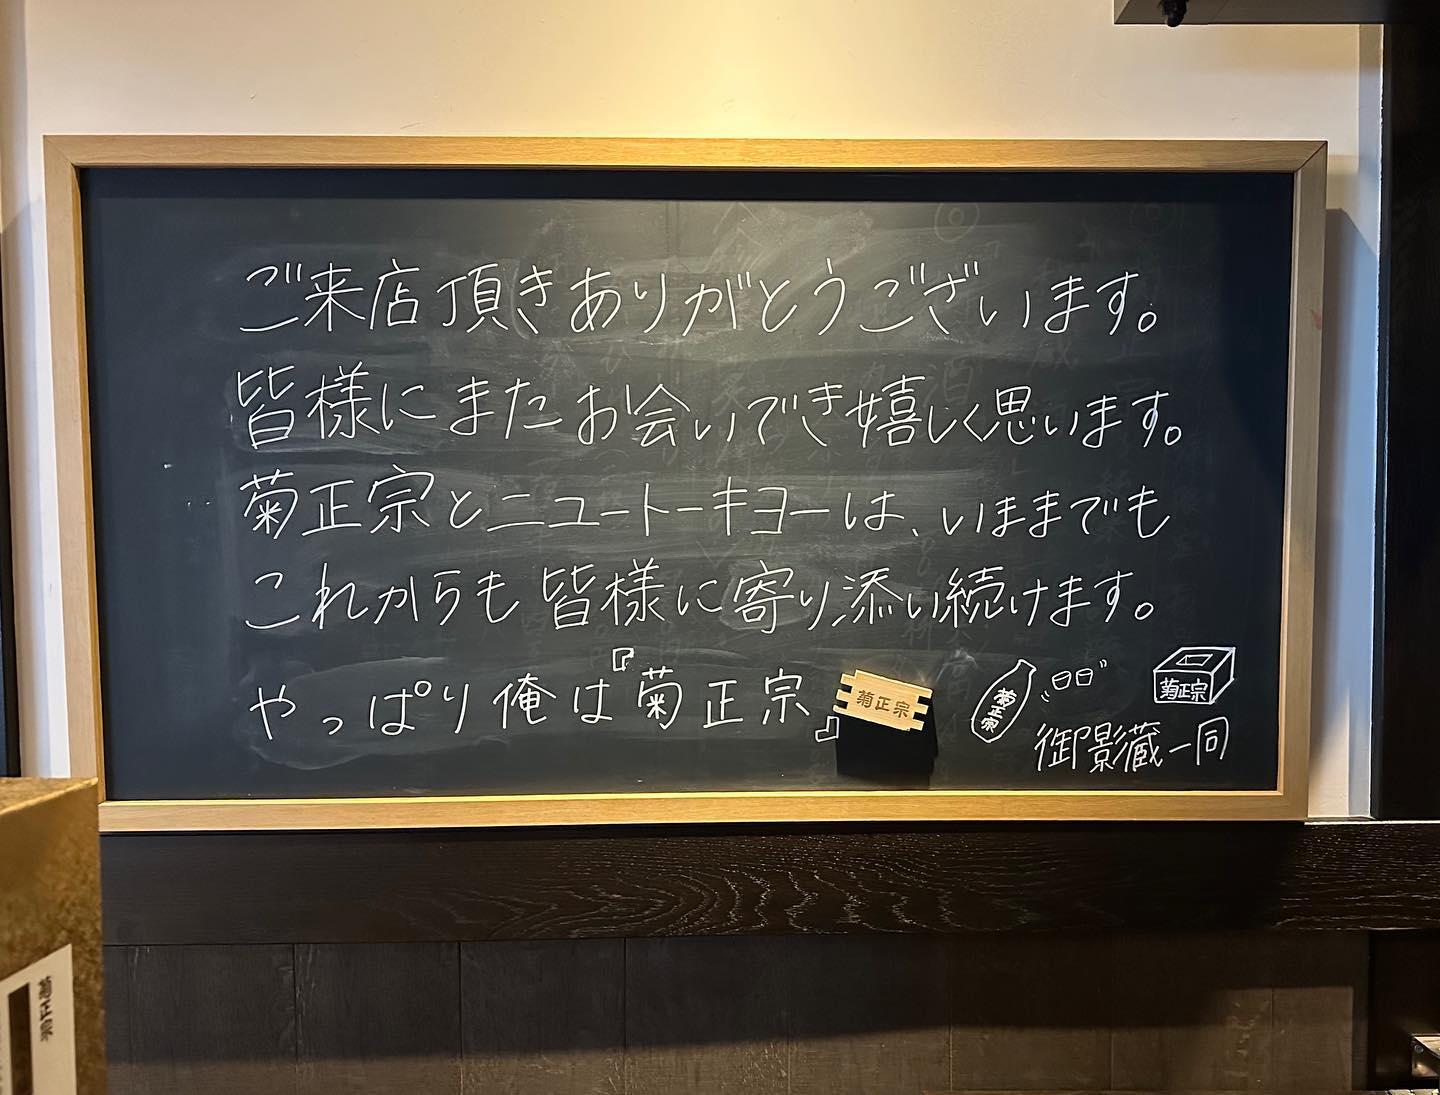 ご来店頂きありがとうございます。
皆様にまたお会いでき嬉しく思います。
菊正宗とニュートーキヨーは、いままでも
これからも皆様に寄り添い続けます。
やっぱり俺は『菊正宗』
菊正宗
菊正宗
菊正宗
御影蔵一同
菊正宗